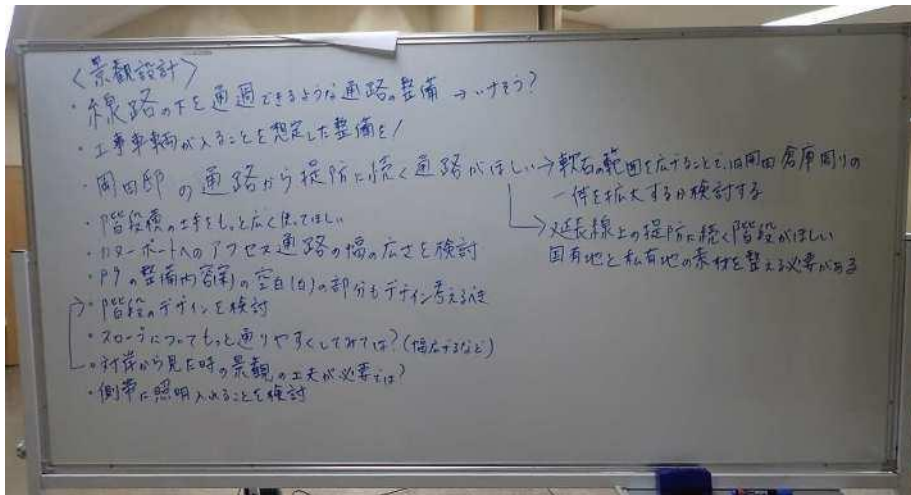 〈景観設計〉
・線路の下を通過できるような通路の整備 → いけそう?
・工事車両が入ることを想定した整備を!
・岡田邸の通路から堤防に続く通路がほしい → 軟石の範囲を広げることで、旧岡田倉庫周りの
一体を拡大するか検討する
→ 延長線上の堤防に続く階段がほしい
国有地と私有地の素材を整える必要がある
・階段横の土手をもっと広く使ってほしい
・カヌーポートへのアクセス通路の幅の広さを検討
・P9の整備内容案)の空白(白)の部分もデザイン考えるべき
・階段のデザインを検討
・スロープについてもっと通りやすくしてみては?(幅広するなど)
・対岸から見た時の景観の工夫が必要では?
・側帯に照明入れることを検討